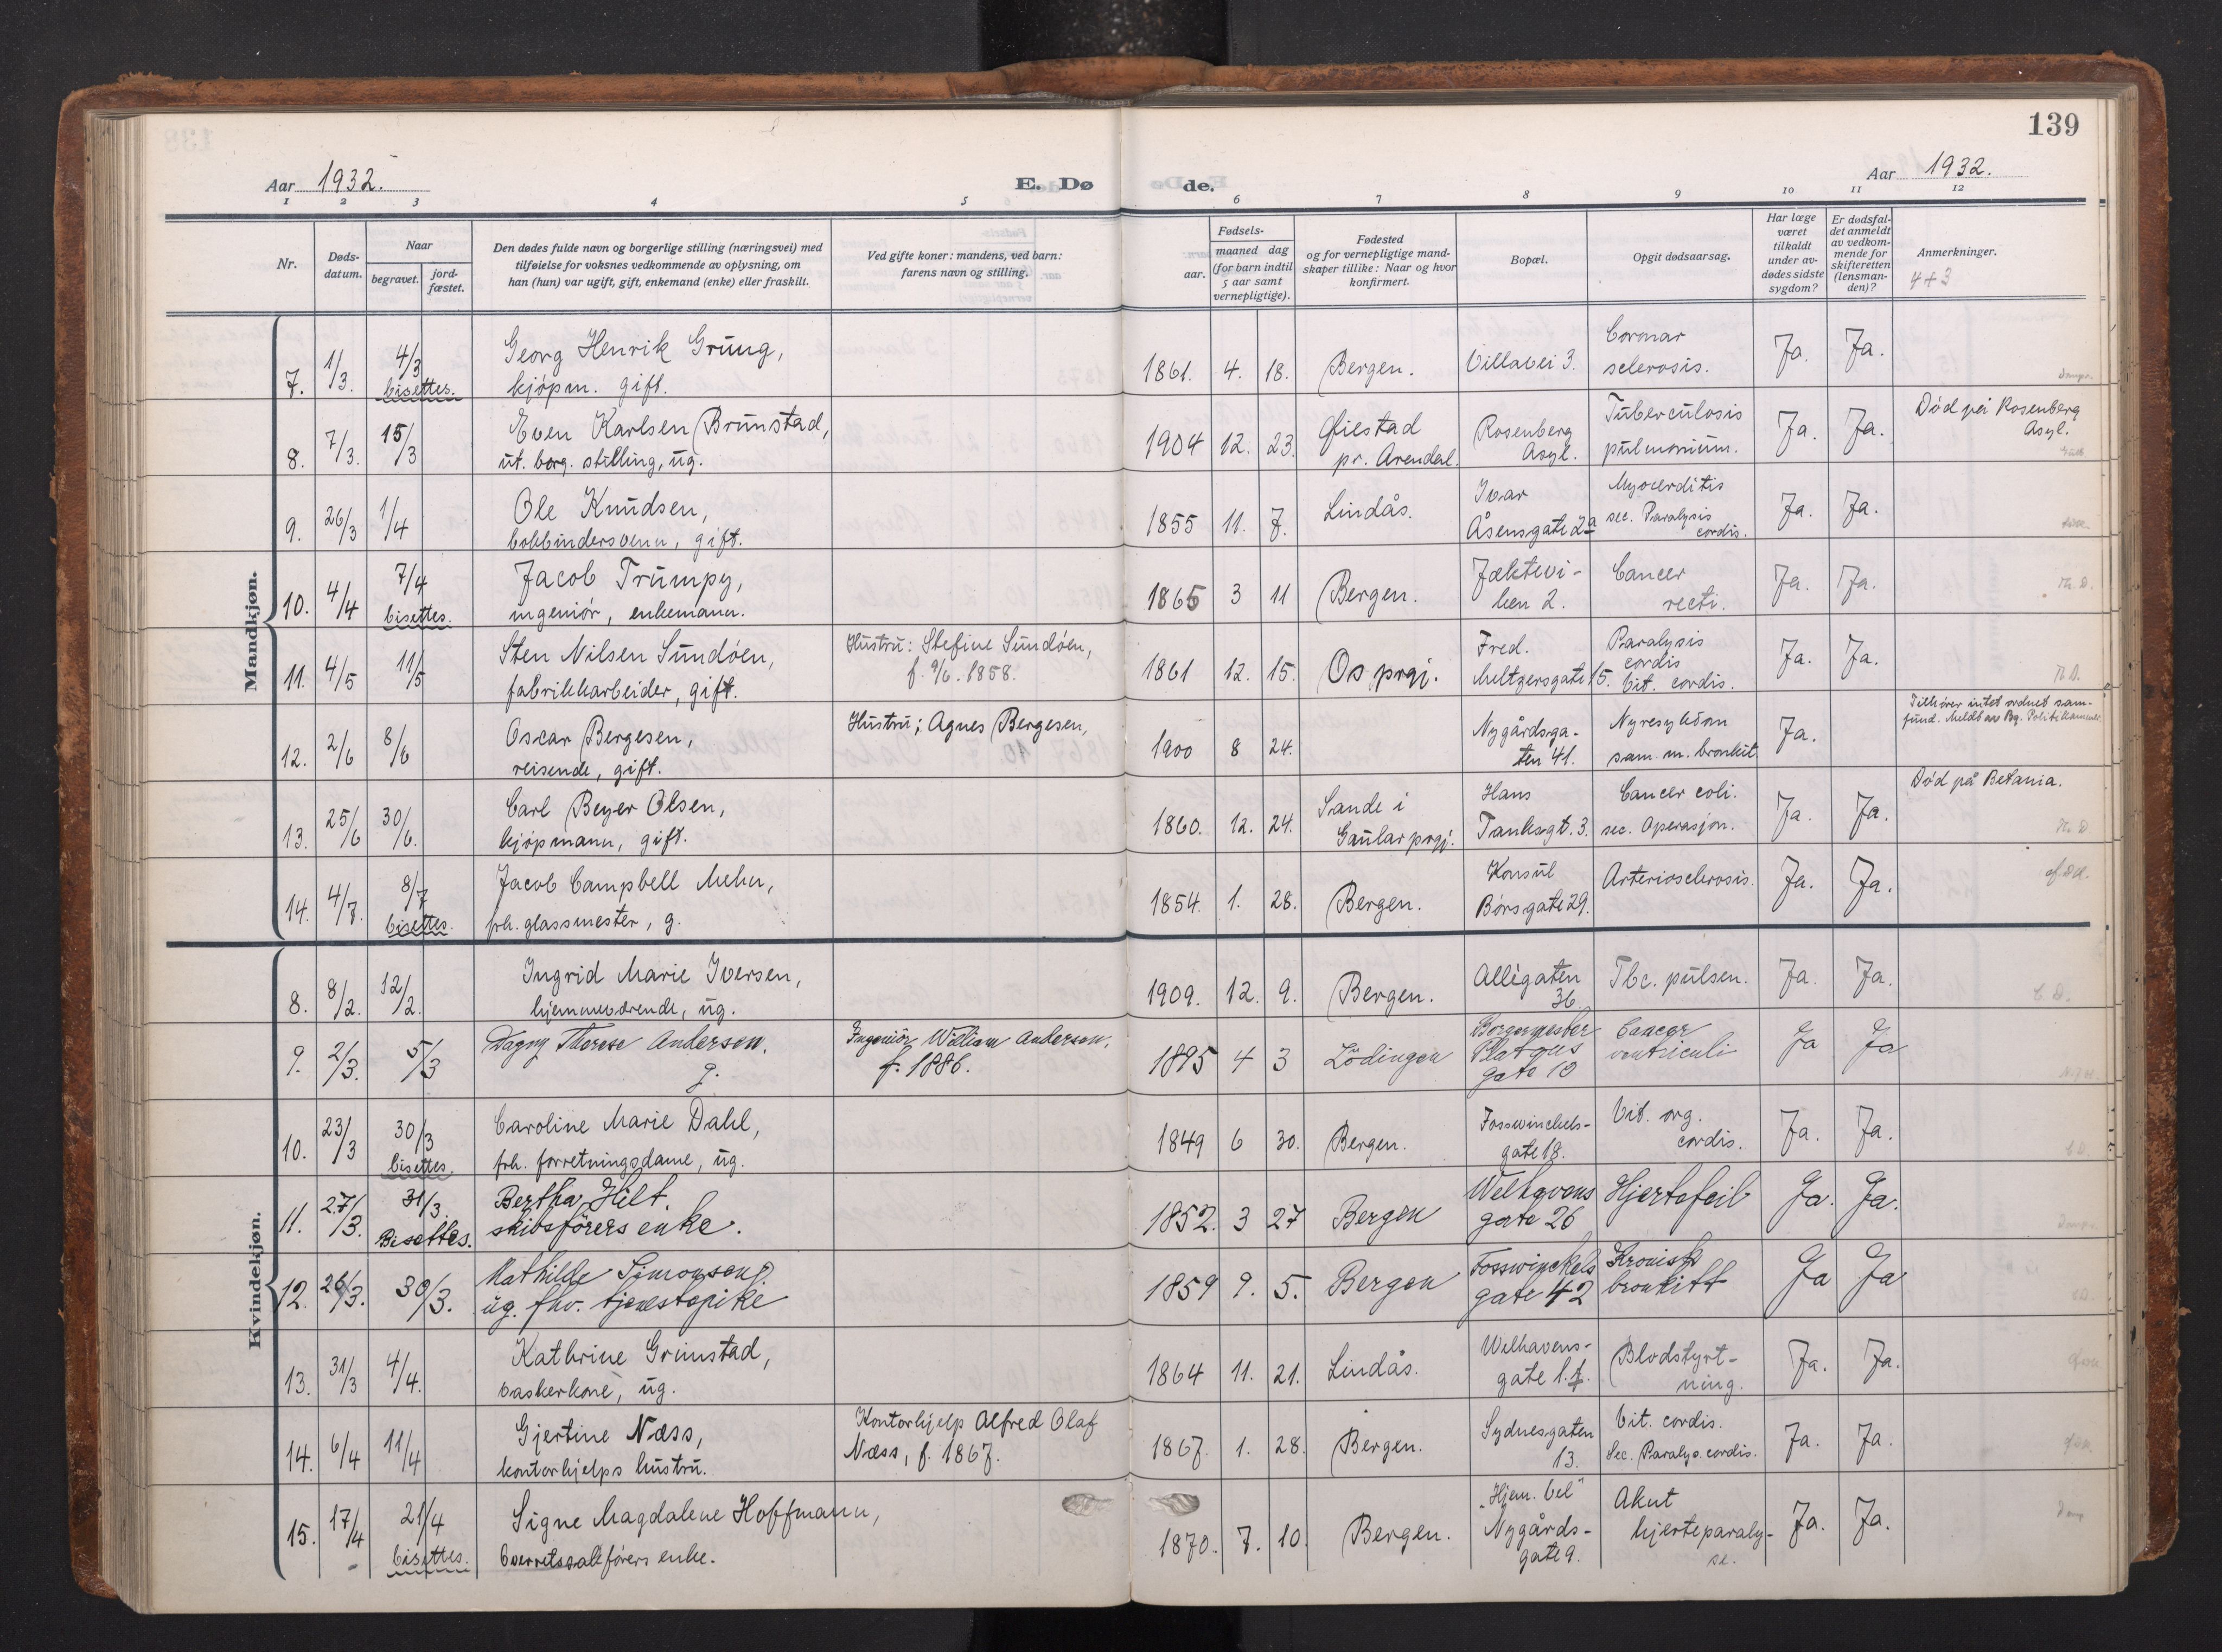 139
Aar 1932.
E. Dø
de.
Aar 1932.
1 2 3 4 5 6 7 8 9 10 11 12
Nr.
Døds-
datum.
Naar
begravet.
jord-
fæstet.
Den dødes fulde navn og borgerlige stilling (næringsvei) med
tilføielse for voksnes vedkommende av oplysning, om
han (hun) var ugift, gift, enkemand (enke) eller fraskilt.
Ved gifte koner: mandens, ved barn:
farens navn og stilling.
Fødsels-
aar.
maaned dag
(for barn indtil
5 aar samt
vernepligtige).
Fødested
og for vernepligtige mand-
skaper tillike: Naar og hvor
konfirmert.
Bopæl.
Opgit dødsaarsag.
Har læge
været
tilkaldt
under av-
dødes sidste
sygdom?
Er dødsfal-
det anmeldt
av vedkom-
mende for
skifteretten
(lensman-
den)?
Anmerkninger.
4+3
Mandkjøn.
7. 1/3. 4/3 bisettes.
Georg Henrik Grung,
kjøpm. gift.
1861. 4. 18. Bergen. Villavei 3.
Coronar
sclerosis.
Ja. Ja.
8. 7/3. 15/3
Even Karlsen Brunstad,
ut. borg. stilling, ug.
1904 12. 23.
Øiestad
pr. Arendal.
Rosenberg
Asyl.
Tuberculosis
pulmonum.
Ja. Ja.
Død på Rosenberg
Asyl.
9. 26/3 1/4
Ole Knudsen,
bobbindersvenn, gift.
1855 11. 7. Lindås.
Ivar
Åsensgate 2a
Myocerditis
sec. Paralysis
cordis.
Ja. Ja.
10. 4/4 7/4 bisettes.
Jacob Trumpy,
ingeniør, enkemann.
1865 3 11 Bergen.
Jæktevi-
ken 2.
Cancer
recti.
Ja. Ja.
11. 4/5 11/5
Sten Nilsen Sundøen,
fabrikkarbeider, gift.
Hustru: Stefine Sundøen,
f. 9/6. 1858.
1861 12. 15. Os prgj.
Fred.
Meltzersgate 15.
Paralysis
cordis
Vit. cordis.
Ja. Ja.
12. 2/6 8/6
Oscar Bergesen,
reisende, gift.
Hustru; Agnes Bergesen,
1900 8 24.
Nygårdsga-
ten 41.
Nyresykdom
sam. m. bronkit
Ja.
Tilhører intet ordnet sam-
fund. Meldt av Bg. Politikammer.
13. 25/6 30/6.
Carl Beyer Olsen,
kjøpmann, gift.
1860. 12. 24.
Sande i
Gaular prgj.
Hans
Tanksgt. 3.
Cancer coli.
sec. Operasjon.
Ja. Ja.
Død på Betania.
14. 4/7. 8/7 bisettes.
Jacob Campbell Mehn,
frh. glassmester, g.
1854. 1. 28. Bergen.
Konsul
Børsgate 29.
Arteriosclerosis.
Ja. Ja.
Kvindekjøn.
8. 8/2. 12/2.
Ingrid Marie Iversen,
hjemmeværende, ug.
1909. 12. 9. Bergen.
Allégaten
36.
Tbc. pulsen.
Ja. Ja.
9. 2/3. 5/3
Dagny Therese Andersen.
g.
Ingeniör William Andersen.
f. 1886.
1895 4 3 Lödingen
Borgermester
Platous
gate 10
Cancer
ventriculi
Ja Ja
10. 23/3 30/3 bisettes.
Caroline Marie Dahl,
frh. forretningsdame, ug.
1849 6 30. Bergen.
Fosswinckels-
gate 18.
Vit. org.
cordis.
Ja. Ja.
11. 27/3. 31/3. Bisettes.
Bertha Hilt.
skibsförers enke.
1852. 3 27 Bergen
Welhavens
gate 26
Hjertefeil
Ja. Ja.
12. 26/3. 30/3.
Mathilde Simonsen.
ug. fhv. tjenestepike
1859 9. 5. Bergen
Fosswinckels
gate 42
Kronisk
bronkitt
Ja Ja
13. 31/3 4/4.
Kathrine Grimstad,
vaskerkone, ug.
1864 11. 21. Lindås.
Welhavens-
gate
Blodstyrt-
ning.
Ja. Ja.
14. 6/4 11/4
Gjertine Næss,
kontorhjelps hustru.
Kontorhjelp Alfred Olaf
Næss, f. 1867.
1867. 1. 28. Bergen.
Sydnesgaten
13.
Vit. cordis.
Sec. Paralys. cordis.
Ja. Ja.
15. 17/4 21/4 bisettes.
Signe Magdalene Hoffmann,
Overretssakførers enke.
1870. 7. 10. Bergen.
"Hjem. Vel"
Nygårds-
gate 9.
Akut
hjerteparaly-
se.
Ja. Ja.